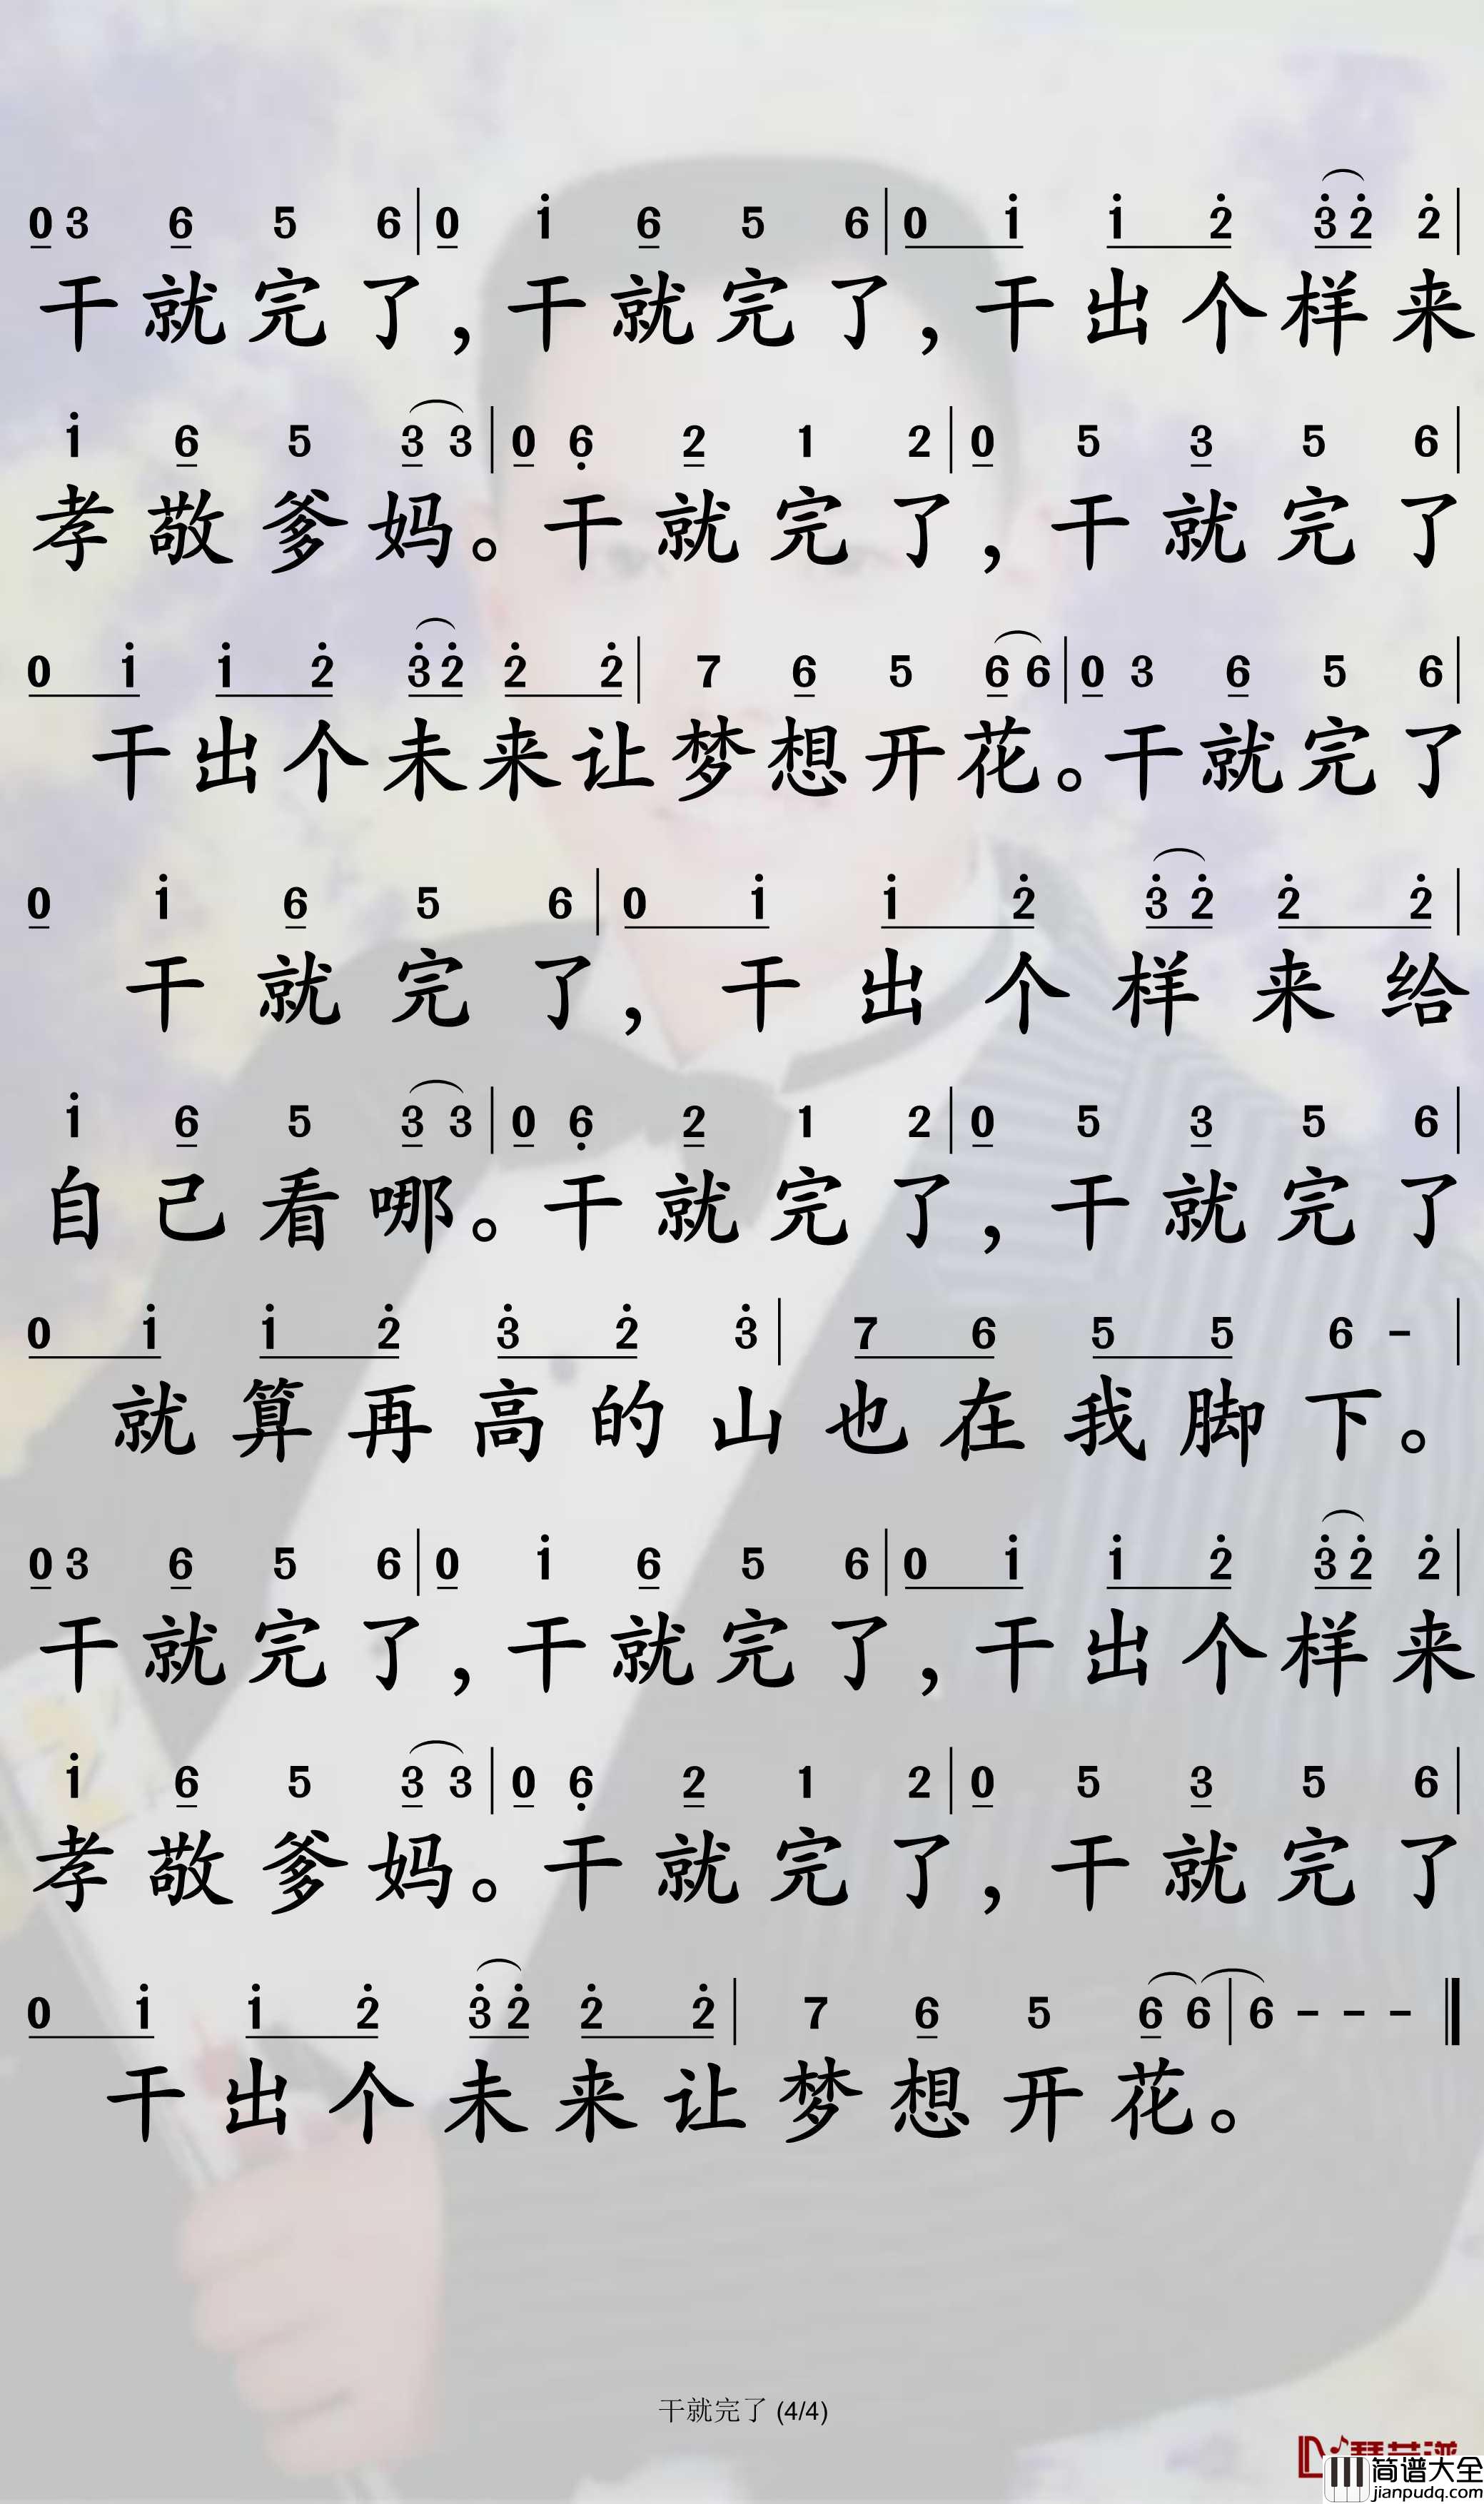 0 3 6 5 6 | 0 i 6 5 6 | 0 i i 2 3 2 2 |
干就完了,干就完了,干出个样来
i 6 5 3 3 | 0 6 2 1 2 | 0 5 3 5 6 |
孝敬爹妈。干就完了,干就完了
0 i i 2 3 2 2 2 | 7 6 5 6 6 | 0 3 6 5 6 |
干出个未来让梦想开花。干就完了
0 i 6 5 6 | 0 i i 2 3 2 2 2 |
干就完了,干出个样来给
i 6 5 3 3 | 0 6 2 1 2 | 0 5 3 5 6 |
自己看哪。干就完了,干就完了
0 i i 2 3 2 3 | 7 6 5 5 6 - |
就算再高的山也在我脚下。
0 3 6 5 6 | 0 i 6 5 6 | 0 i i 2 3 2 2 |
干就完了,干就完了,干出个样来
i 6 5 3 3 | 0 6 2 1 2 | 0 5 3 5 6 |
孝敬爹妈。干就完了,干就完了
0 i i 2 3 2 2 2 | 7 6 5 6 6 | 6 - - - ‖
干出个未来让梦想开花。
干就完了 (4/4)
简谱大全
jianpudq.com